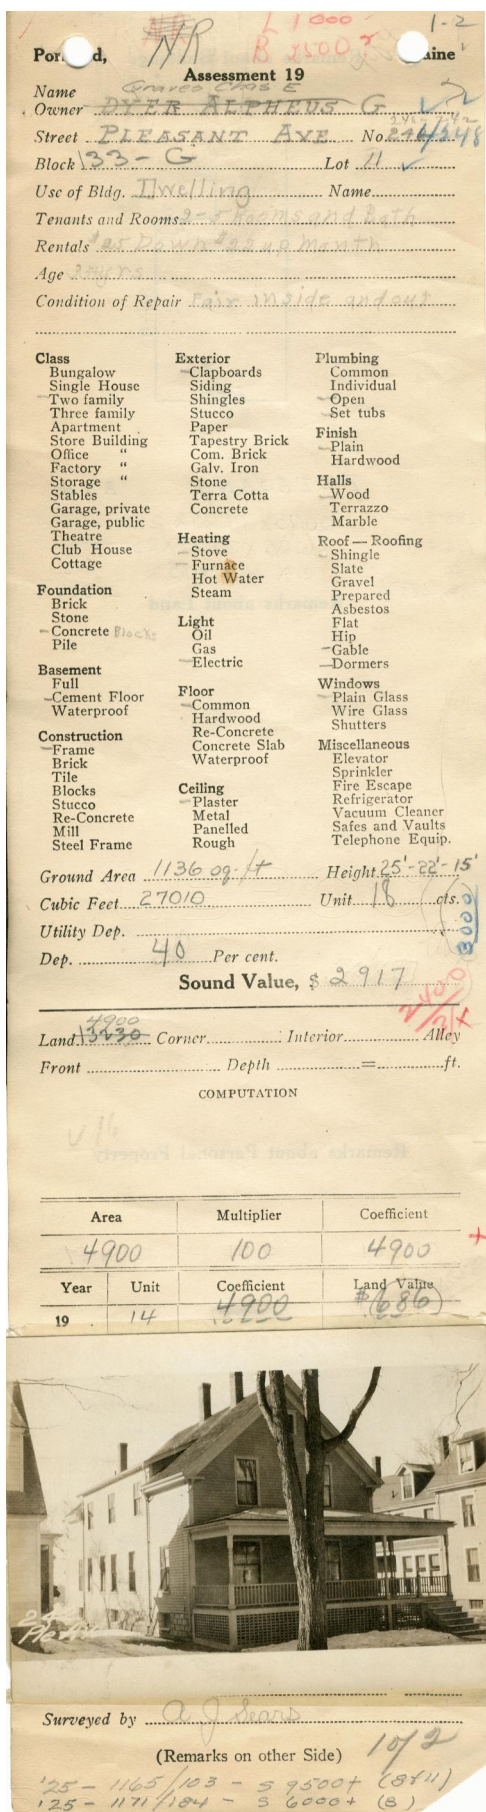 NR L 1000 1-2
B 2500?
Portland, Maine
Assessment 19
Graves Chas E
Name
Owner DYER ALPHEUS G
Street PLEASANT AVE No. 248
Block 133-G Lot 11
Use of Bldg. Dwelling Name
Tenants and Rooms 2-5 Rooms and Bath
Rentals $25 Down $22 up Month
Age yrs
Condition of Repair Fair inside and out
Class
Bungalow
Single House
Two family
Three family
Apartment
Store Building
Office "
Factory "
Storage "
Stables
Garage, private
Garage, public
Theatre
Club House
Cottage
Foundation
Brick
Stone
Concrete Blocks
Pile
Basement
Full
Cement Floor
Waterproof
Construction
Frame
Brick
Tile
Blocks
Stucco
Re-Concrete
Mill
Steel Frame
Exterior
Clapboards
Siding
Shingles
Stucco
Paper
Tapestry Brick
Com. Brick
Galv. Iron
Stone
Terra Cotta
Concrete
Heating
Stove
Furnace
Hot Water
Steam
Light
Oil
Gas
Electric
Floor
Common
Hardwood
Re-Concrete
Concrete Slab
Waterproof
Ceiling
Plaster
Metal
Panelled
Rough
Plumbing
Common
Individual
Open
Set tubs
Finish
Plain
Hardwood
Halls
Wood
Terrazzo
Marble
Roof — Roofing
Shingle
Slate
Gravel
Prepared
Asbestos
Flat
Hip
Gable
Dormers
Windows
Plain Glass
Wire Glass
Shutters
Miscellaneous
Elevator
Sprinkler
Fire Escape
Refrigerator
Vacuum Cleaner
Safes and Vaults
Telephone Equip.
Ground Area 1136 sq. ft Height 25'-22'-15'
Cubic Feet 27010 Unit 18 cts.
Utility Dep. 3000
Dep. 40 Per cent.
Sound Value, $ 2917
2400
4900
Land 13230 Corner Interior Alley
Front Depth = ft.
COMPUTATION
Area Multiplier Coefficient
4900 100 4900 +
Year Unit Coefficient Land Value
19 14 4900 $686
Surveyed by A J Sears
(Remarks on other Side) 10/2
'25 - 1165/103 - S 9500+ (8+11)
'25 - 1171/184 - S 6000+ (8)